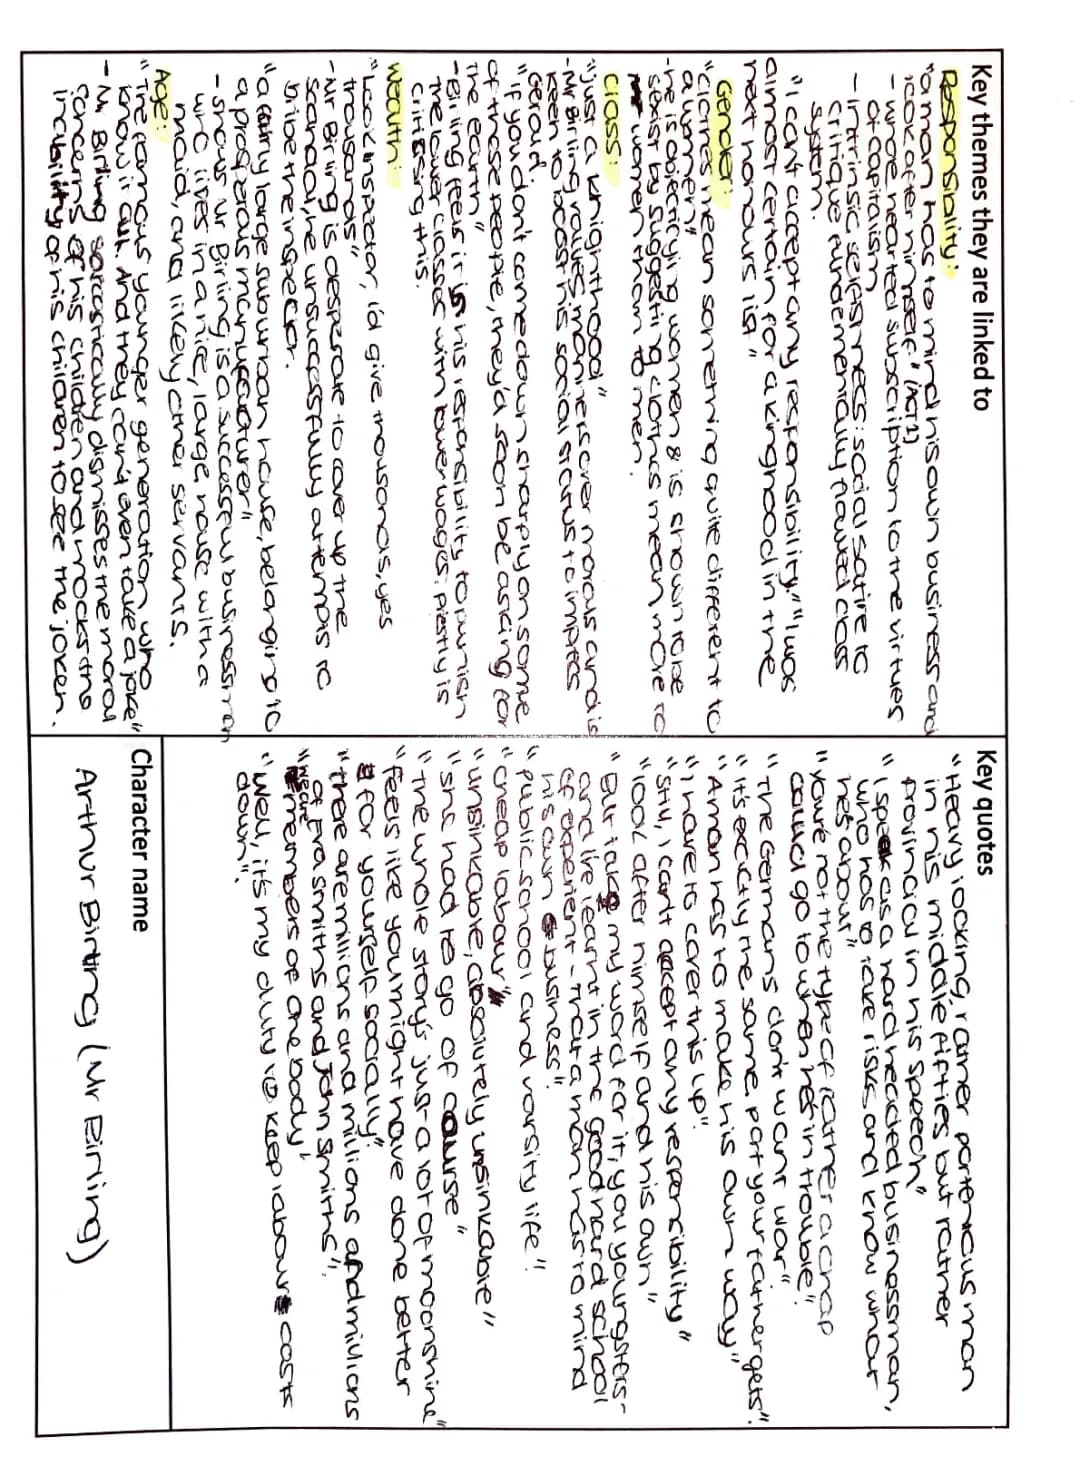 Key themes they are linked to
Responsibility:
"a man has to mind his own business and
look after himself" (ACT 1)
- whole hearted subscription to the virtues
of capitalism
- Intrinsic selfishness: social satire to
critique fundementally flawed class
system.
"I can't accept any responsibility" "I was
almost certain for a knighthood in the
next honours list"
Gender:
"clothes mean something quite different to
a women"
- he is objectifying women & is shown to be
sexist by suggesting clothes mean more to
women than to men.
Class:
"Just a knighthood"
- Mr Birling values manners over morals and is
keen to boast his social status to impress
Gerald.
"If you don't come down sharply on some
of these people, they'd soon be asking for
the earth"
- Birling feels it is his responsibility to punish
the lower classes with lower wages. Priestly is
critising this.
Wealth:
"Look inspector, I'd give thousands, yes
thousands"
- Mr Birling is desperate to cover up the
scandal, he unsuccessfully attempts to
bribe the inspector.
"a fairly large suburban house, belonging to
a prosperous manufacturer"
- shows Mr Birling is a successful businessman
who lives in a nice, large house with a
maid, and likely other servants.
Age:
"The famous younger generation who
know it all. And they can't even take a joke"
- Mr Birling sarcastically dismisses the moral
concerns of his children and mocks the
inability of his children to see the joken.
Key quotes
"Heavy looking, rather portentous man
in his middle fifties but rather
provincial in his speech"
"I speak as a hard headed businessman,
who has to take risks and know what
he's about"
"you're not the type of father a chap
could go to when he's in trouble".
"The Germans don't want war"
"It's exactly the same port your father gets".
"A man has to make his own way"
"I have to cover this up".
"Still, I can't accept any responsibility"
"look after himself and his own"
"But take my word for it, you youngsters-
and I've learnt in the good hard school
of experient - that a man has to mind
his own business".
"public-school and varsity life"!
"cheap labour"
"unsinkable, absolutely unsinkable"
"She had to go of course"
"The whole story's just a lot of moonshine"
"feels like you might have done better
for yourself socially".
"there are millions and millions and millions
of Eva Smiths and John Smiths".
"We are members of one body"
"Well, it's my duty to keep labour costs
down".
Character name
Arthur Birling (Mr Birling)